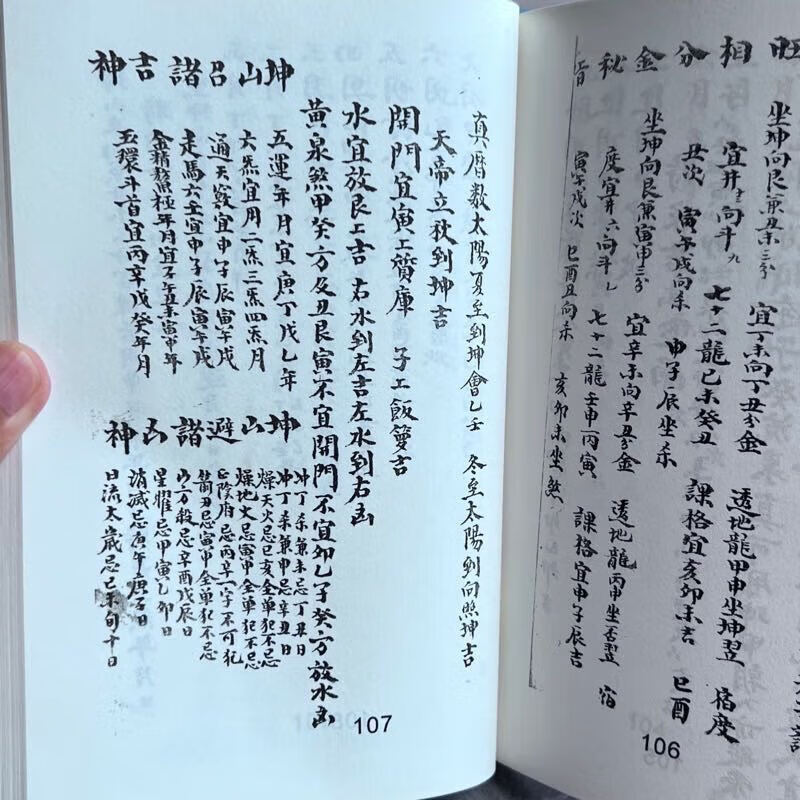 旺相分金秘旨
坐坤向艮兼丑未三分 宜丁未向丁丑分金 透地龍甲申坐坤翌 宿度
宜井向斗九 七十二龍己未癸丑 課格宜亥卯未吉 巳酉
丑次 寅午戌向杀 申子辰坐杀
坐坤向艮兼寅申三分 宜辛未向辛丑分金 透地龍丙申坐否翌 宿
度宜井六向斗 七十二龍壬申丙寅 課格宜申子辰吉
寅午戌次 巳酉丑向杀 亥卯未坐煞
106
真曆数太陽夏至到坤會乙壬 冬至太陽到向照坤吉
天帝立秋到坤吉
開門宜寅工質庫 子工飯籮吉
水宜放艮工吉 右水到左吉左水到右凶
黃泉煞甲癸方及丑艮寅不宜開門不宜卯乙子癸方放水凶
坤山召諸吉神
五運年月宜庚丁戊乙年
六炁宜用二炁三炁四炁月
通天竅宜申子辰寅午戌
走馬六壬宜申子辰寅午戌
金精鰲極年月宜子午丑未寅申年
玉環斗首宜丙辛戊癸年月
坤山避諸凶神
冲丁杀兼未忌丁丑日
冲丁杀兼申忌辛丑日
燥天火忌巳亥全单犯不忌
燥地火忌寅申全单犯不忌
正陰府忌丙辛一字不可犯
箭刃忌寅申全单犯不忌
方殺忌辛酉戊辰日
星曜忌甲寅乙卯日
消滅忌庚午庚子日
日流太歲忌己未旬十日
107